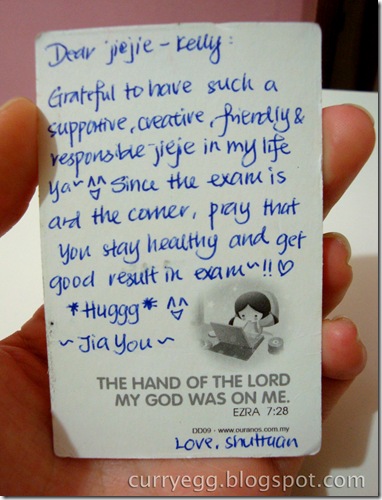 Dear jiejie - Kelly :
Grateful to have such a
supportive, creative, friendly &
responsible jieje in my life
ya~ ^^ Since the exam is
ard the corner, pray that
you stay healthy and get
good result in exam~!! ♡
*Huggg* ^^
~ Jia You ~
THE HAND OF THE LORD
MY GOD WAS ON ME.
EZRA 7:28
DD09 - www.ouranos.com.my
Love, Shuthuan
curryegg.blogspot.com